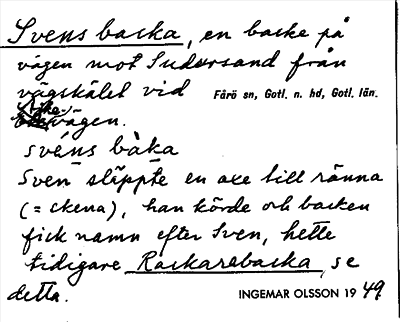 Svens backa, en backe på
vägen mot Sudersand från
vägskälet vid Fårö sn, Gotl. n. hd, Gotl. län.
vägen.
svéns bàka
Sven släppte en axe till ränna
(= skena), han körde och backen
fick namn efter Sven, hette
tidigare Rackarebacka, se
detta. INGEMAR OLSSON 1949.